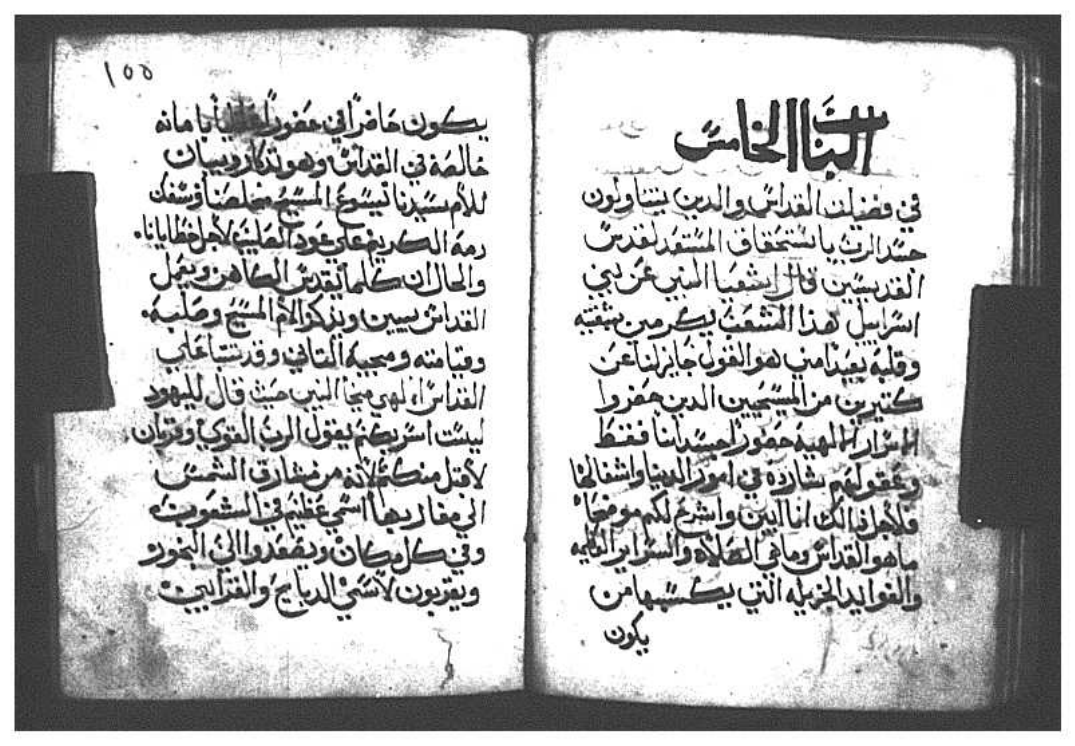 الباب الخامس
في فضيلت القداس والدين يتناولون
جسد الرب باستحقاق المستعد لقدس
القديسين قال اشعيا النبي عن بني
اسراييل هذا الشعب يكرمني بشفتيه
وقلبه بعيدا مني هو القول جايز لنا عن
كتيرين من المسيحيين الدين حضروا
الاسرار الالهيه حضورا جسدانيا فقط
وعقولهم شارده في امور الدنيا واشغالها
فلاجل دالك انا ابين واشرح لكم موضحا
ماهو القداس وما هي الصلاه والسراير
والفوايد الجزيله التي يكتسبها من
يكون
١٥٥
يكون حاضرا في حضورا بامانه
خالصه في القداس وهو تدكار وبيان
للالام سيدنا يسوع المسيح مخلصنا وسفك
دمه الكريم علي عود الصليب لاجل خطايانا.
والحال ان كلما يقدس الكاهن ويعمل
القداس يبين ويذكر الام المسيح وصلبه.
وقيامته ومجيه التاني وقد تنبا علي
القداس الالهي النبي حيث قال لليهود
ليست اسر بكم يقول الرب القوي وقربان
لا اقبل منكم لانه من مشارق الشمس
الي مغاربها اسمي عظيم في الشعوب
وفي كل مكان ويصعدوا الي البخور
ويقربون لاسمي الدبايح والقرابين